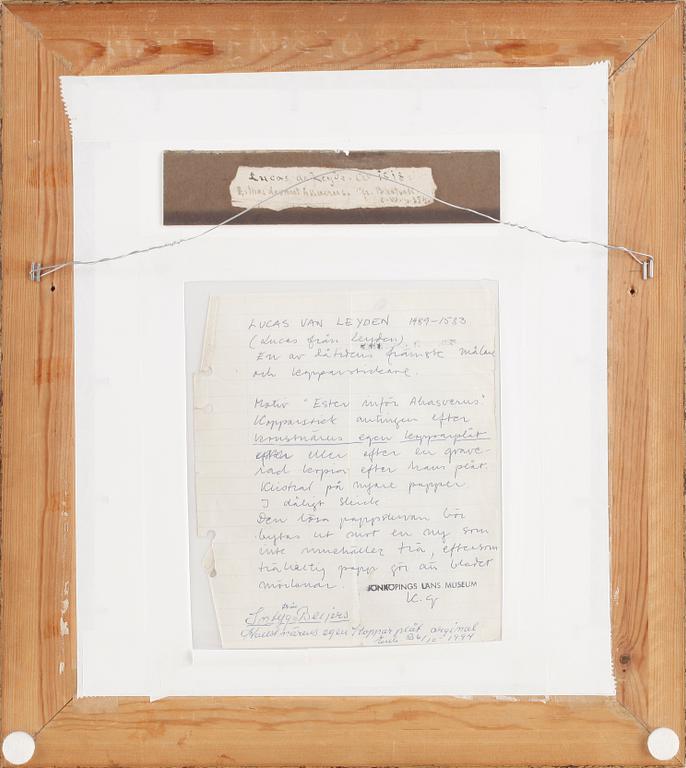 Lucas de Leyde. 
LUCAS VAN LEYDEN 1489-1533
(Lucas från Leyden)
En av dåtidens främste målare
och kopparstickare.
Motiv "Ester inför Ahasverus"
Kopparstick antingen efter
konstnärens egen kopparplåt
efter eller efter en grave-
rad kopia efter hans plåt.
Klistrat på nyare papper.
I dåligt skick
Den lösa pappskivan bör
bytas ut mot en ny som
inte innehåller trä, eftersom
trähaltig papp gör att bladet
mörknar.
JÖNKÖPINGS LÄNS MUSEUM
K.G
från
Intyg Beijers
Konstnärens egen Kopparplåt orginal